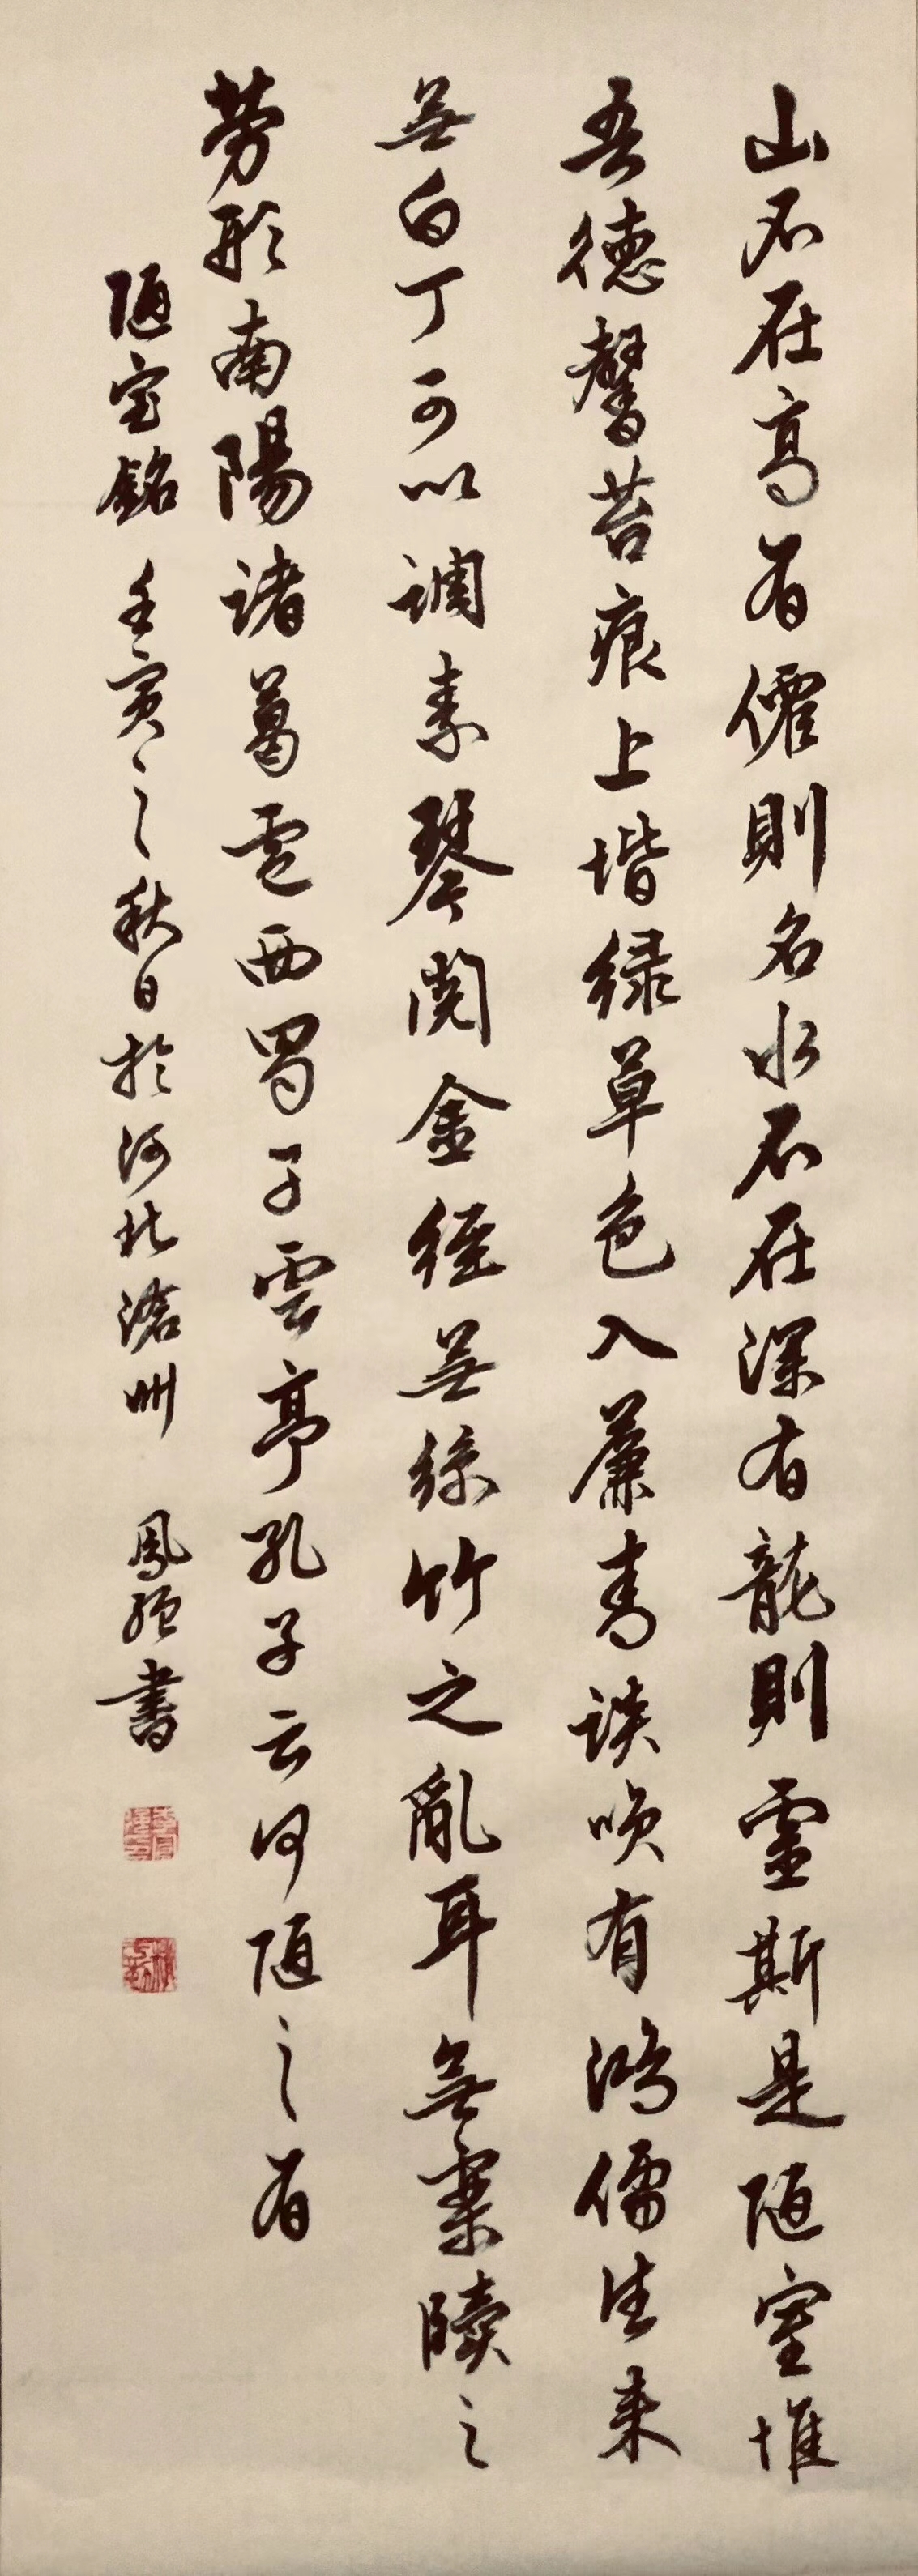 山不在高有僊則名水不在深有龍則靈斯是陋室惟
吾德馨苔痕上堦緑草色入簾青談咲有鴻儒往来
無白丁可以調素琴閲金經無絲竹之亂耳無案牘之
勞形南陽諸葛廬西蜀子雲亭孔子云何陋之有
陋室銘 壬寅之秋日於河北滄州 鳳書